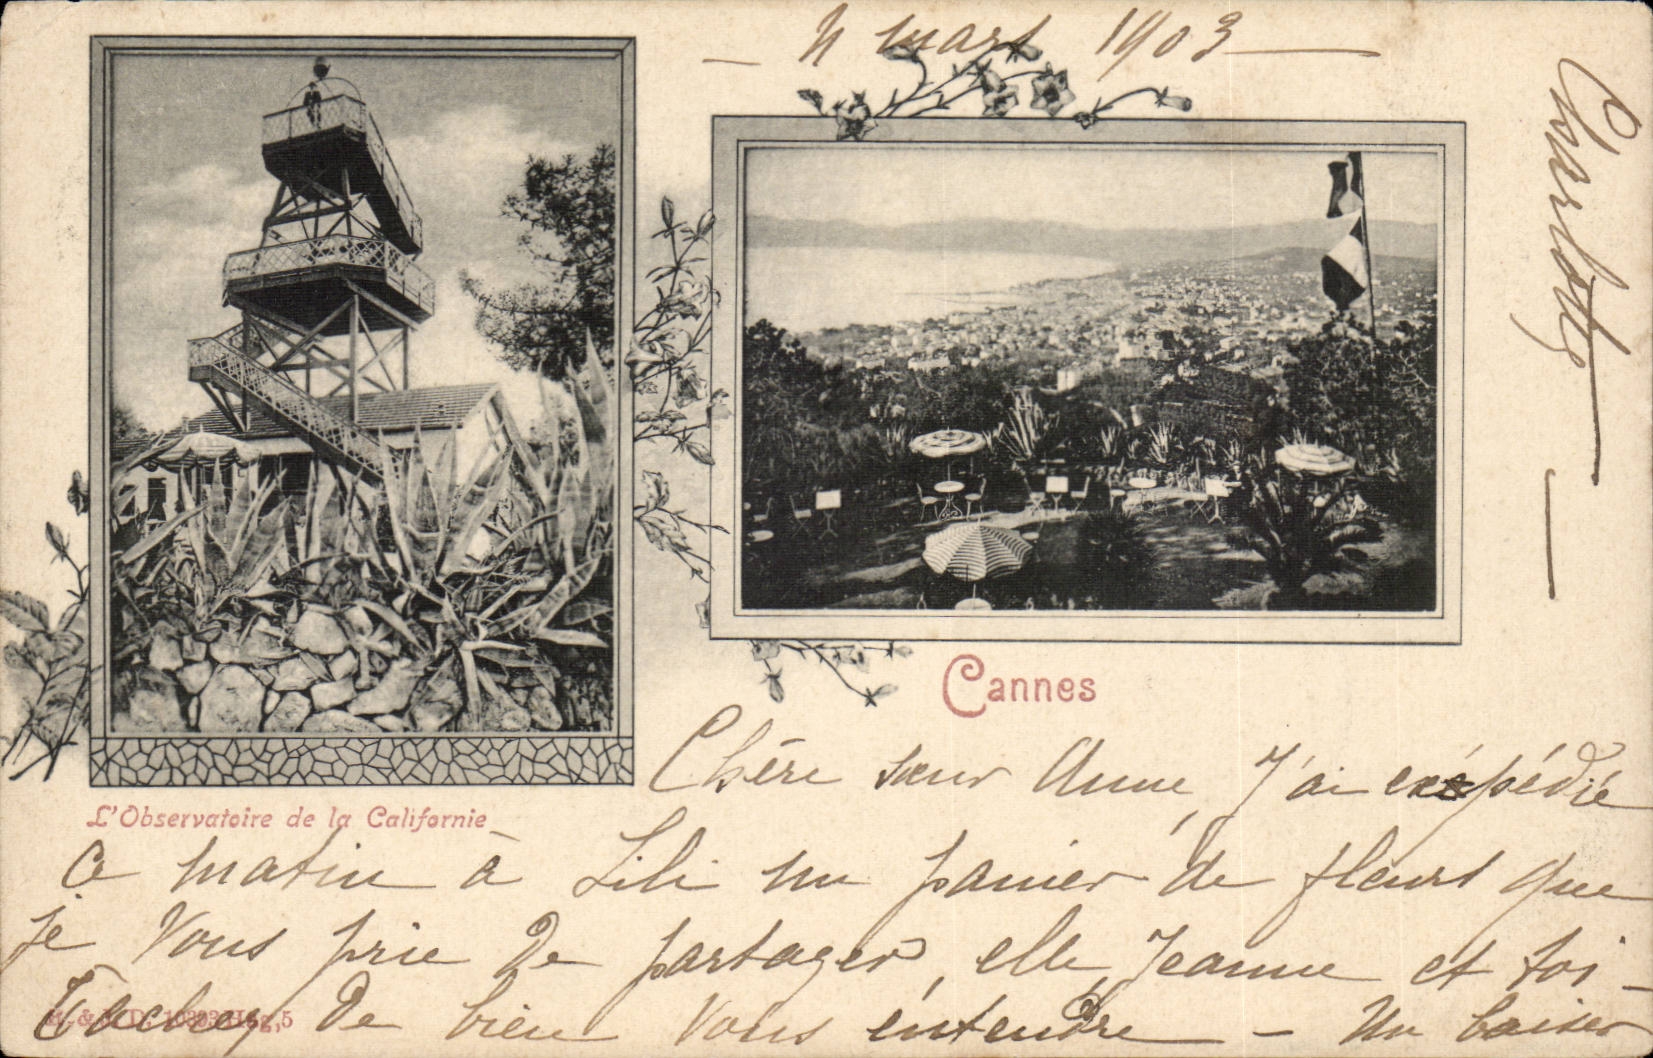 — 4 mars 1903 —
Cannes
L'Observatoire de la Californie
Chère sœur Anne, J'ai expédié
ce matin à Lili un panier de fleurs que
je vous prie de partager, elle, Jeanne et toi —
Tachez de bien vous entendre — Un baiser
Charlotte —